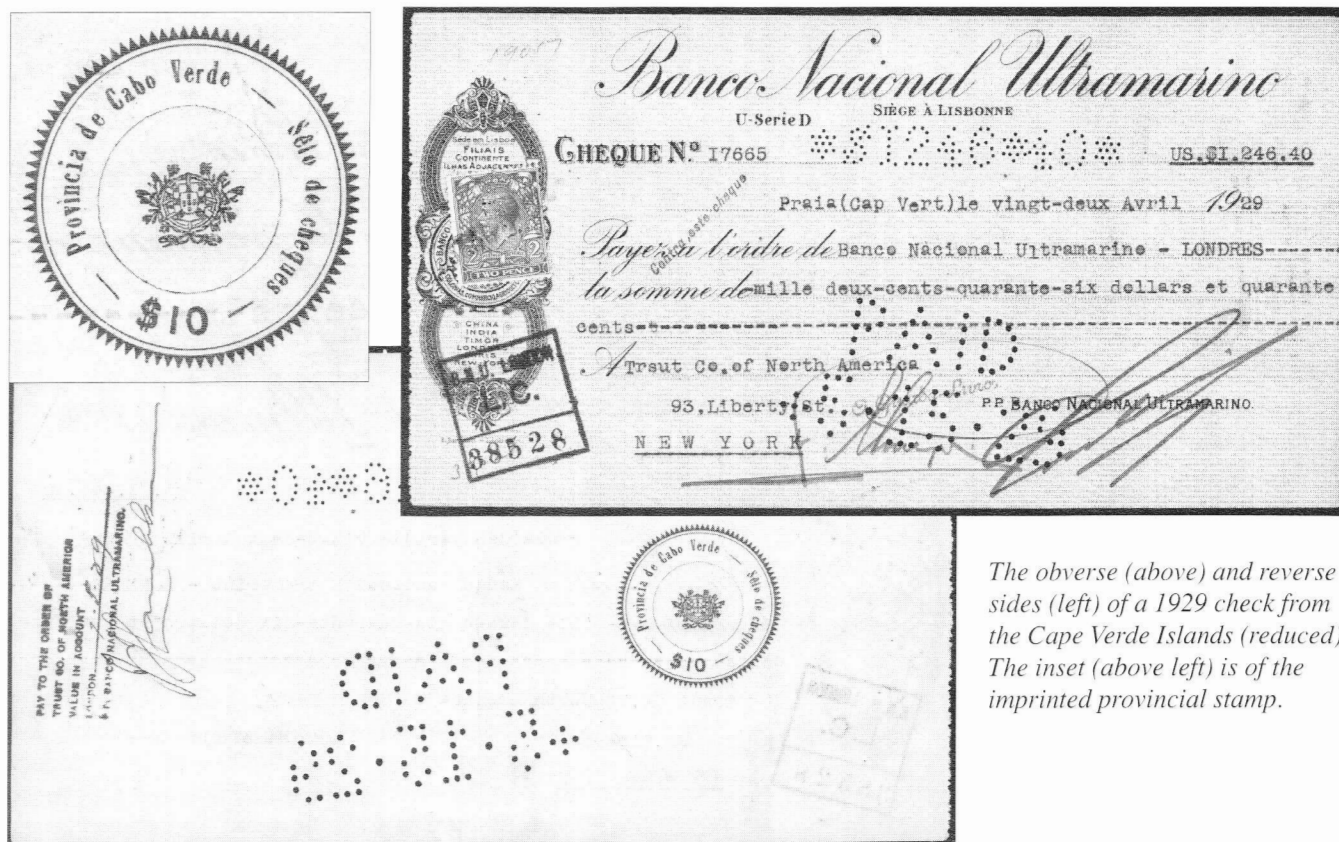 Provincia de Cabo Verde — Sêlo de cheques —
$10
Banco Nacional Ultramarino
U-Serie D
SIÈGE À LISBONNE
CHEQUE N.º 17665
*$1246*40*
US.$1.246.40
Praia(Cap Vert)le vingt-deux Avril 1929
Payez à l'ordre de Banco Nacional Ultramarino - LONDRES------
la somme de-mille deux-cents-quarante-six dollars et quarante
cents-
A Trsut Co.of North America
93,Liberty St.
P.P. BANCO NACIONAL ULTRAMARINO.
NEW YORK
Contra este cheque
Sede em Lisboa
FILIAIS
CONTINENTE
ILHAS ADJACENTES
TWO PENCE
CHINA
INDIA
TIMOR
38528
PAID
PAY TO THE ORDER OF
TRUST CO. OF NORTH AMERICA
VALUE IN ACCOUNT
LONDON
BANCO NACIONAL ULTRAMARINO.
Provincia de Cabo Verde — Sêlo de cheques —
$10
PAID
The obverse (above) and reverse
sides (left) of a 1929 check from
the Cape Verde Islands (reduced)
The inset (above left) is of the
imprinted provincial stamp.